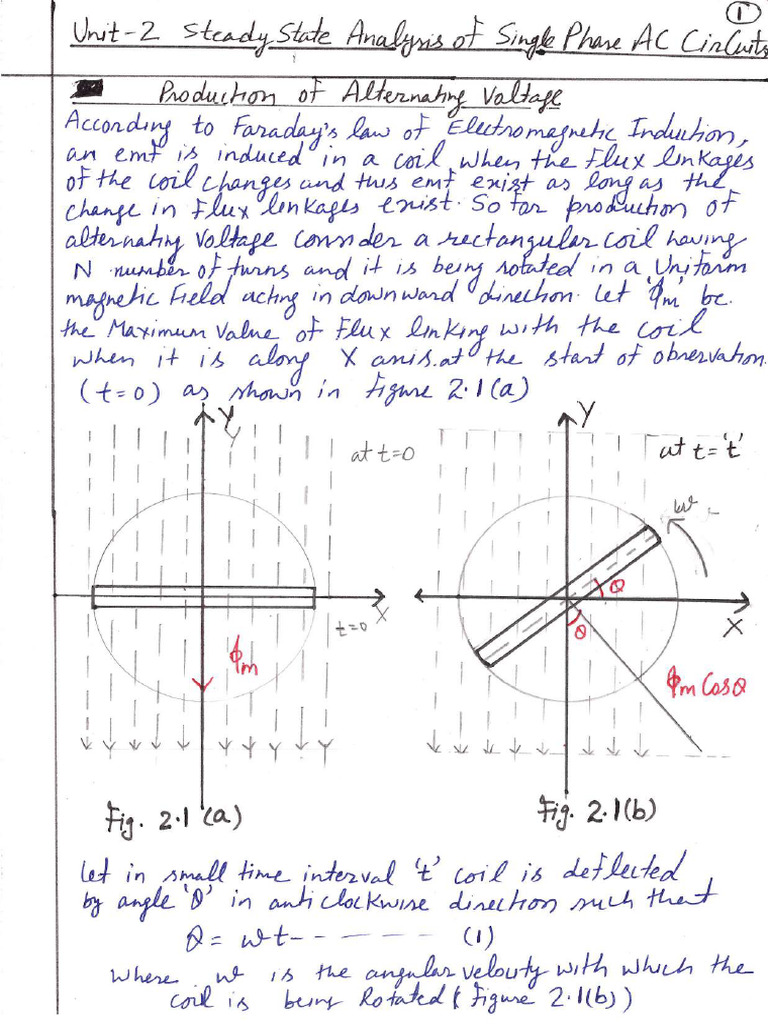 1
Unit-2 Steady State Analysis of Single Phase AC Circuits
Production of Alternating Voltage
According to Faraday's law of Electromagnetic Induction,
an emf is induced in a coil when the flux linkages
of the coil changes and this emf exist as long as the
change in flux linkages exist. So for production of
alternating voltage consider a rectangular coil having
N number of turns and it is being rotated in a Uniform
magnetic field acting in downward direction. Let 'ϕm' be
the Maximum value of flux linking with the coil
when it is along X axis. at the start of observation
(t=0) as shown in figure 2.1(a)
Y
Y
at t=0
X
t=0
ϕm
Fig. 2.1 (a)
Y
at t='t'
w
θ
θ
X
ϕm Cosθ
Fig. 2.1(b)
Let in small time interval 't' coil is deflected
by angle 'θ' in anticlockwise direction such that
θ = wt - - - - - - - (1)
where w is the angular velocity with which the
coil is being Rotated (figure 2.1(b))